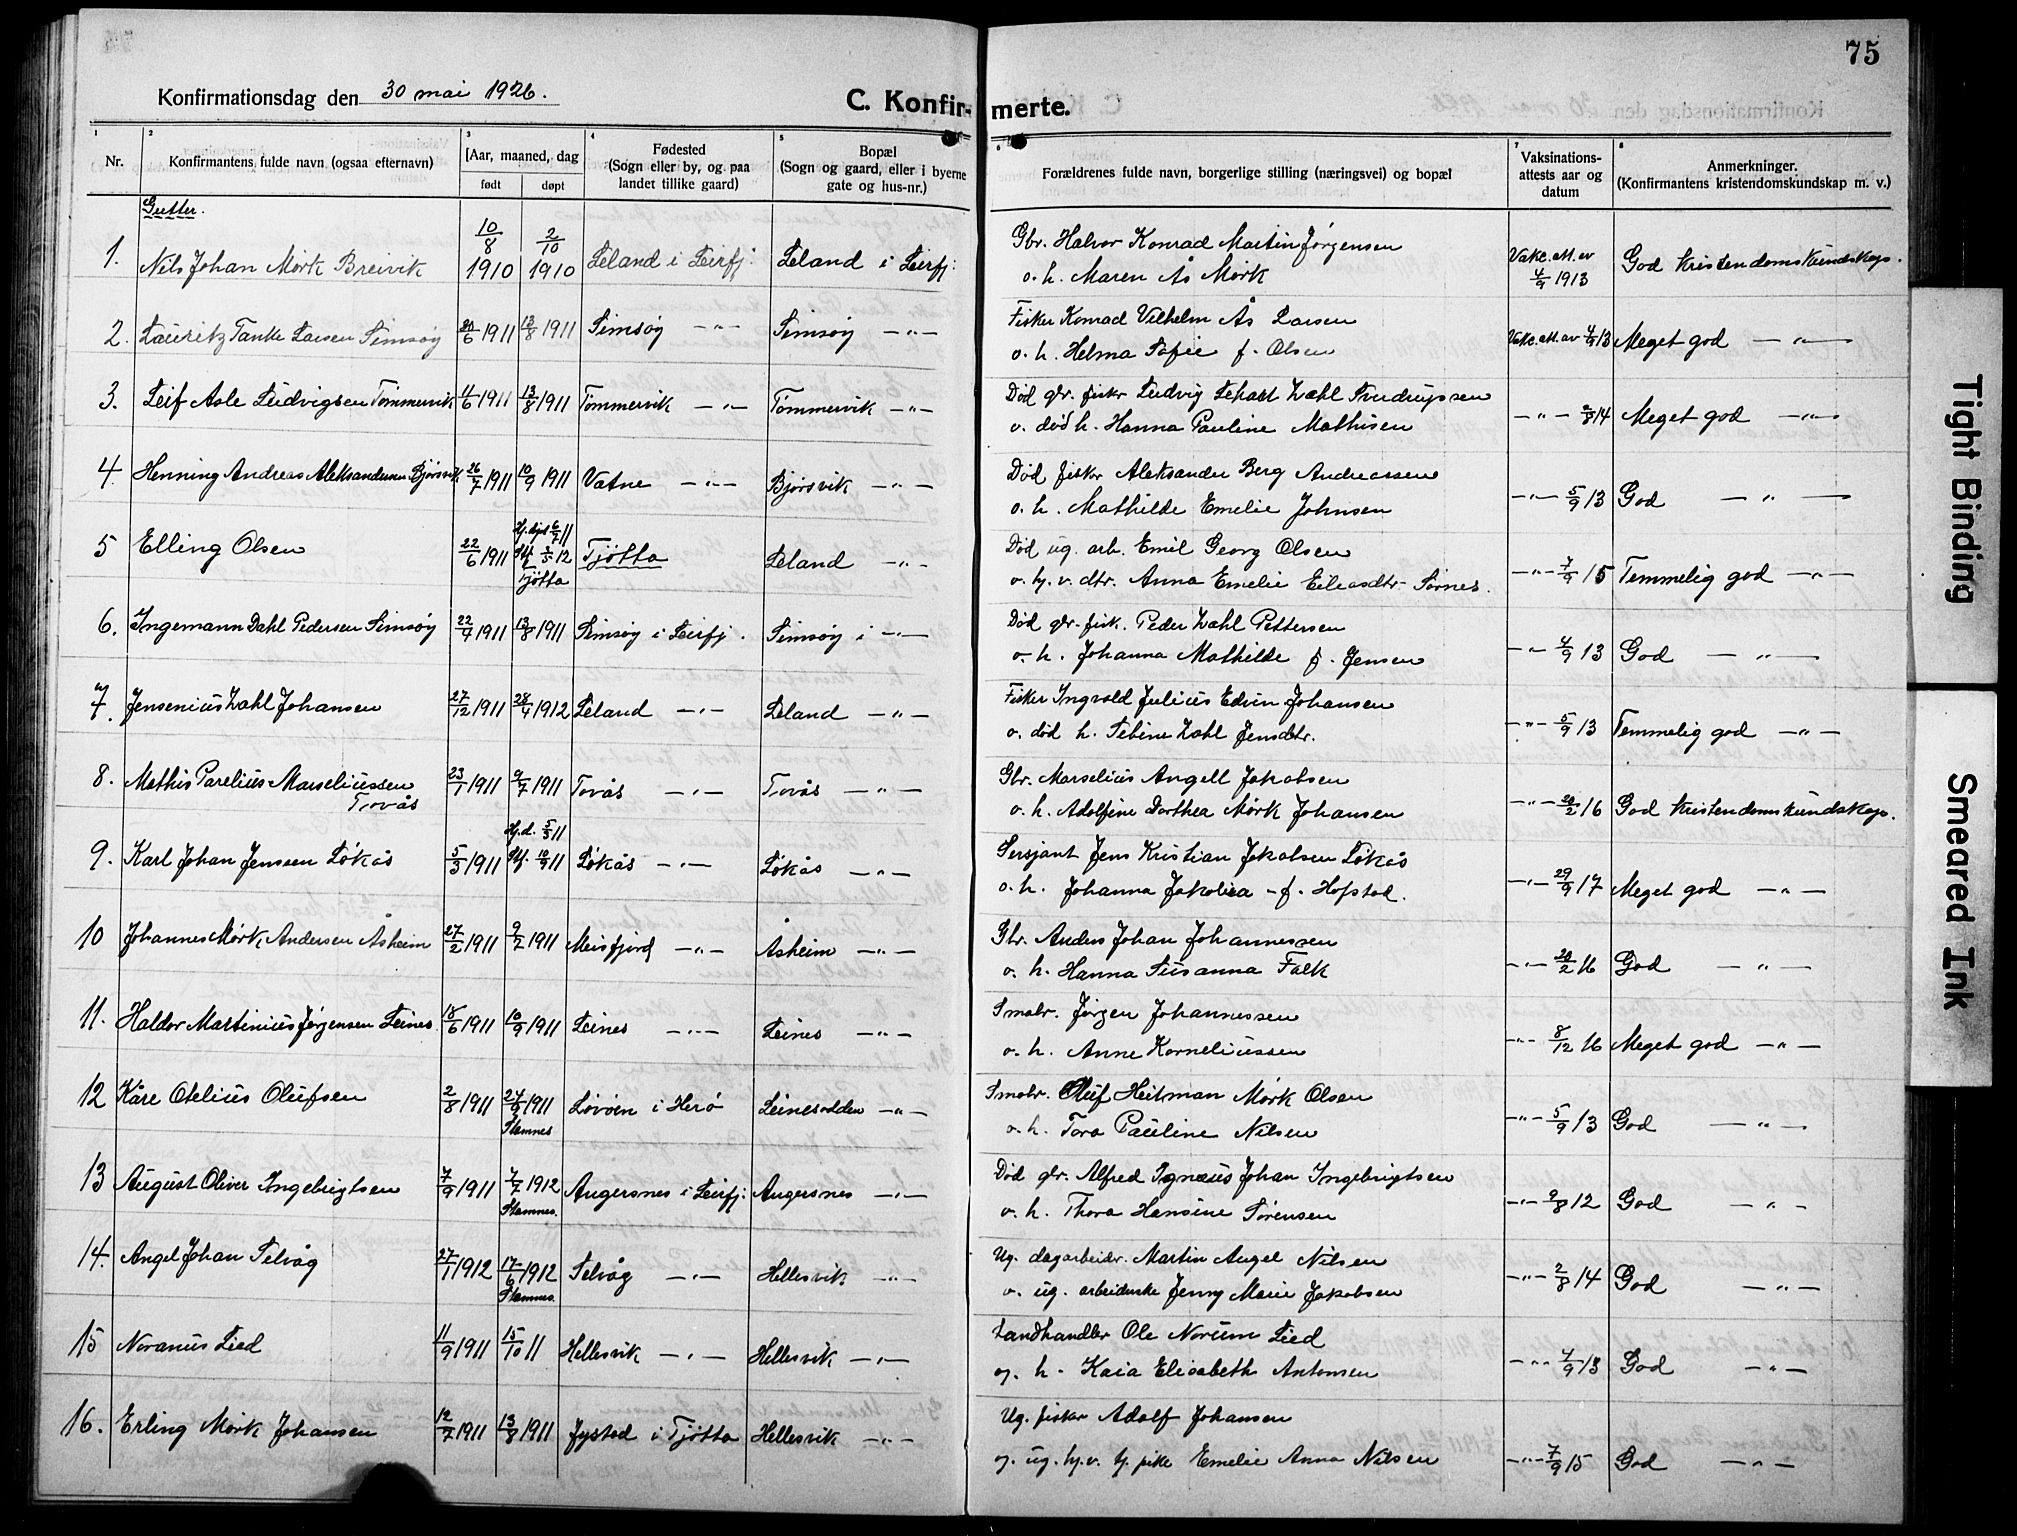 75
Konfirmationsdag den 30 mai 1926.
C. Konfirmerte.
1 2 3 4 5 6 7 8
Nr.
Konfirmantens fulde navn (ogsaa efternavn)
Aar, maaned, dag
født døpt
Fødested
(Sogn eller by, og paa
landet tillike gaard)
Bopæl
(Sogn og gaard, eller i byerne
gate og hus-nr.)
Forældrenes fulde navn, borgerlige stilling (næringsvei) og bopæl
Vaksinations-
attests aar og
datum
Anmerkninger.
(Konfirmantens kristendomskundskap m. v.)
Gutter.
1. Nils Johan Mørk Breivik 10/8 1910 2/10 1910 Leland i Leirfj: Leland i Leirfj: Gbr. Halvor Konrad Martin Jørgensen
o. h. Maren Ås Mørk Vakc. att. av 4/9 1913 God kristendomskundskap.
2. Lauritz Tanke Larsen Simsøy 20/6 1911 13/8 1911 Simsøy -"- Simsøy -"- Fisker Konrad Vilhelm Ås Larsen
o. h. Helma Sofie f. Olsen Vakc. att. av 4/9 13 Meget god -"-
3. Leif Asle Ludvigsen Tømmervik 11/6 1911 13/8 1911 Tømmervik -"- Tømmervik -"- Død gbr. fisker Ludvig Zahl
o. død h. Hanna Pauline Mathisen -"- 2/8 14 Meget god -"-
4. Henning Andreas Aleksandersen Bjørsvik 26/7 1911 10/9 1911 Vatne -"- Bjørsvik -"- Død fisker Aleksander Berg Andreassen
o. h. Mathilde Emelie Johnsen -"- 5/9 13 God -"-
5 Elling Olsen 22/6 1911 Tjøtta Tjøtta Leland -"- Død ug. arb. Emil Georg Olsen
o. hj. v. dtr. Anna Emelie Eliasdtr. Sørnes. -"- 7/9 15 Temmelig god -"-
6. Ingemann Dahl Pedersen Simsøy 22/4 1911 13/8 1911 Simsøy i Leirfj. Simsøy i -"- Død gbr. fisk. Peder Zahl Pettersen
o. h. Johanna Mathilde f. Jensen -"- 4/9 13 God -"-
7. Jensenius Zahl Johansen 27/12 1911 28/4 1912 Leland -"- Leland -"- Fisker Ingvald Julius Edvin Johansen
o. død h. Sebine Zahl Jensdtr. -"- 5/9 13 Temmelig god -"-
8. Mathis Parelius Marseliussen
Tovås 23/1 1911 9/7 1911 Tovås -"- Tovås -"- Gbr. Marselius Angell Jakobsen
o. h. Adolfine Dorthea Mørk Johansen -"- 20/2 16 God kristendomskundskap.
9. Karl Johan Jensen Løkås 5/3 1911 Hj. d. 5/3 11 Løkås -"- Løkås -"- Sersjant Jens Kristian Jakobsen Løkås
o. h. Johanna Jakobea - f. Hofstad. -"- 29/9 17 Meget god -"-
10 Johannes Mørk Andersen Åsheim 27/2 1911 9/7 1911 Meisfjord -"- Åsheim -"- Gbr. Anders Johan Johannessen
o. h. Hanna Susanna Falk -"- 20/2 16 God -"-
11. Haldor Martinius Jørgensen Leines 18/6 1911 10/9 1911 Leines -"- Leines -"- Smabr. Jørgen Johannessen
o. h. Anne Korneliussen -"- 8/12 16 Meget god -"-
12 Kåre Otelius Olufsen 2/8 1911 24/9 1911
Stamnes Løvøen i Herø Leinesodden -"- Smabr. Oluf Heitman Mørk Olsen
o. h. Tora Pauline Nilsen -"- 5/9 13 God -"-
13 August Oliver Ingebrigtsen 7/9 1911 7/7 1912
Stamnes. Angersnes i Leirfj: Angersnes -"- Død gbr. Alfred Ignæus Johan Ingebrigtsen
o. h. Thora Hansine Sørensen -"- 2/8 12 God -"-
14. Angel Johan Selvåg 27/1 1912 17/6 1912
Stamnes. Selvåg -"- Hellesvik -"- Ug. dagarbeidr. Martin Angel Nilsen
o. ug. arbeiderske Jenny Marie Jakobsen -"- 2/8 14 God -"-
15 Noranus Lied 11/9 1911 15/10 11 Hellesvik -"- Hellesvik -"- Landhandler Ole Norum Lied
og. h. Kaia Elisabeth Antonsen -"- 4/9 13 God -"-
16. Erling Mørk Johansen 12/7 1911 13/8 1911 Jystad i Tjøtta Hellesvik -"- Ug. fisker Adolf Johansen
og. ug. hj. v. tj. pike Emelie Anna Nilsen -"- 7/9 15 God -"-
Tight Binding
Smeared Ink